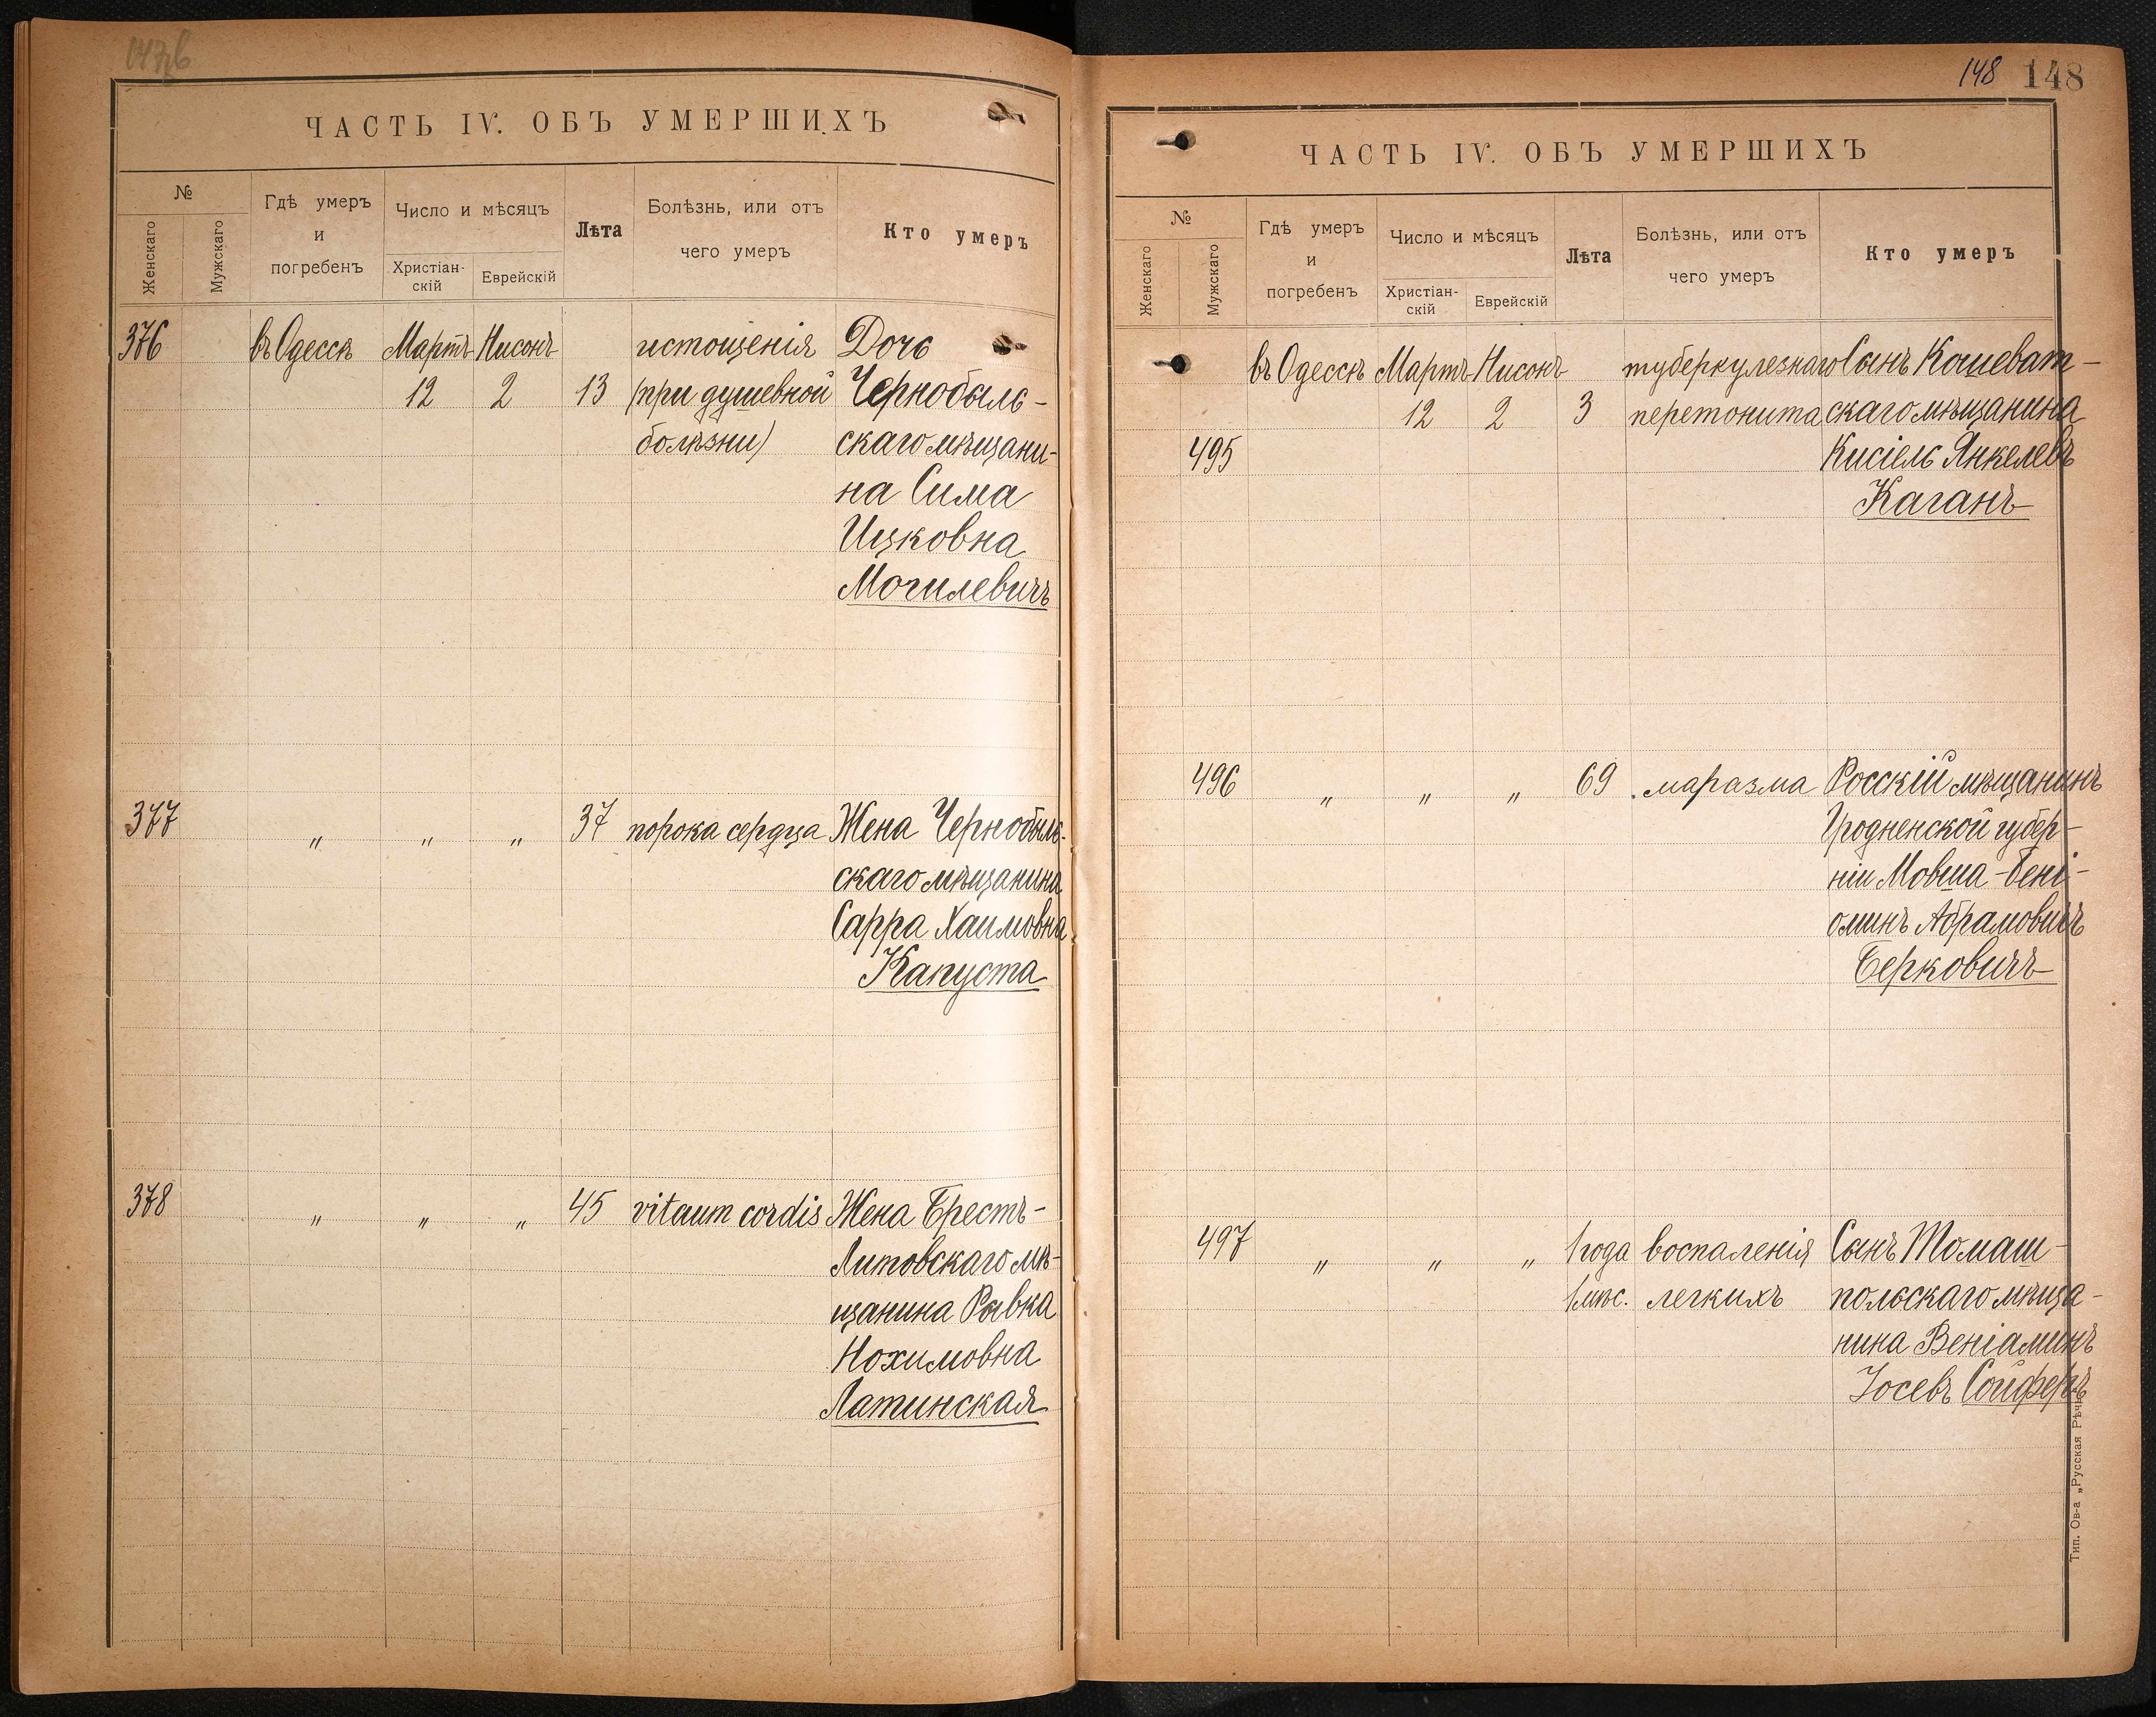 ЧАСТЬ IV. ОБЪ УМЕРШИХЪ
№
Женскаго
Мужскаго
Гдѣ умеръ
и
погребенъ
Число и мѣсяцъ
Христіан-
скій
Еврейскій
Лѣта
Болѣзнь, или отъ
чего умеръ
Кто умеръ
376 въ Одессѣ Мартъ Нисонъ истощенія Дочь
12 2 13 (при душевной Чернобыль-
болѣзни) скаго мѣщани-
на Сима
Ицковна
Могилевичъ
377 „ „ „ 37 порока сердца Жена Чернобыль-
скаго мѣщанина
Сарра Хаимовна
Капуста
378 „ „ „ 45 vitaum cordis Жена Брестъ-
Литовскаго мѣ-
щанина Рывка
Нохимовна
Латинская
148 148
ЧАСТЬ IV. ОБЪ УМЕРШИХЪ
№
Женскаго
Мужскаго
Гдѣ умеръ
и
погребенъ
Число и мѣсяцъ
Христіан-
скій
Еврейскій
Лѣта
Болѣзнь, или отъ
чего умеръ
Кто умеръ
въ Одессѣ Мартъ Нисонъ туберкулезнаго Сынъ Кошеват-
12 2 3 перетонита скаго мѣщанина
495 Кисіель Янкелевъ
Каганъ
496 „ „ „ 69 маразма Росскій мѣщанинъ
Гродненской губер-
ніи Мовша-Бені-
оминъ Абрамовичъ
Берковичъ
497 „ „ „ 1 года воспаленія Сынъ Томаш-
1 мѣс. легкихъ польскаго мѣща-
нина Веніаминъ
Іосевъ Сойферъ
Тип. Ов-а „Русская Рѣчь"